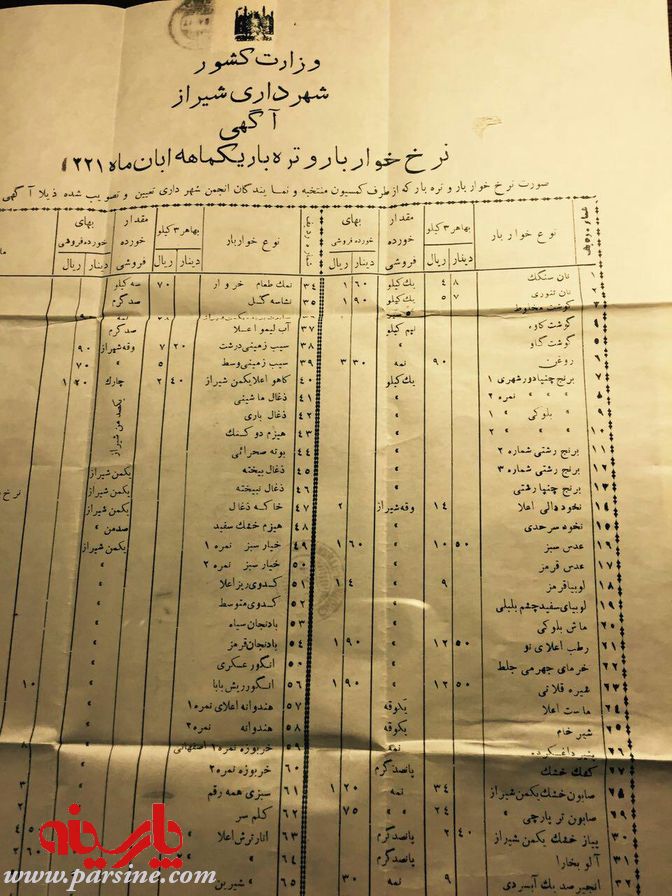 وزارت کشور
شهرداری شیراز
آگهی
نرخ خواربار و تره بار یکماهه ابان ماه ۱۳۲۱
صورت نرخ خوار بار و تره بار که از طرف کمسیون منتخبه و نمایندگان انجمن شهرداری تعیین و تصویب شده ذیلا آگهی
نوع خوار بار بهاهر ۳ کیلو دینار ریال مقدار خورده فروشی بهای خورده فروشی دینار ریال
نوع خواربار بهاهر ۳ کیلو دینار ریال مقدار خورده فروشی بهای خورده فروشی دینار ریال
۱ نان سنگک ۴ ۸ یک کیلو ۱ ۶۰
۲ نان تنوری ۵ ۷ یک کیلو ۱ ۹۰
گوشت مخلوط
گوشت گاو
روغن ۹۰ نمه ۳ ۳۰
۷ برنج چنپا دورشهری ۱ یک کیلو
» » » نمره ۲
۹ » بلوکی » ۱
۱۰ » » » ۲
۱۱ برنج رشتی شماره ۲
۱۲ برنج رشتی شماره ۳
۱۳ برنج چنپا رشتی
۱۴ نخود دالی اعلا ۱۴ وقه شیراز ۲
۱۵ نخود سرحدی
۱۶ عدس سبز ۱۰ ۵۰ » ۱ ۶۰
۱۷ عدس قرمز
۱۸ لوبیا قرمز ۹ » ۱ ۴
۱۹ لوبیای سفید چشم بلبلی
۲۰ ماش بلوکی
۲۱ رطب اعلای نو ۱۲ ۵۰ » ۱ ۹۰
۲۲ خرمای جهرمی جلط
۲۳ شیره قلاتی ۱۲ ۵۰ » ۱ ۹۰
۲۴ ماست اعلا یکوقه
۲۵ شیر خام یکوقه
۲۶ پنیر
۲۷ کشک خشک پانصد گرم
۲۸ صابون خشک یکمن شیراز ۳۴ نمه ۱ ۲۰
۲۹ صابون تر پارچی ۲۴ » ۷۵
۳۰ پیاز خشک یکمن شیراز ۲ ۴۰ پانصد گرم
۳۱ آلو بخارا پانصد گرم
۳۲ انجیر صد یک آبسردی ۹ نمه ۳۰
۳۴ نمک طعام خروار ۷۰ سه کیلو
۳۵ نشاسته گل صد گرم
۳۷ آب لیمو اعلا صد گرم
۳۸ سیب زمینی درشت ۷ ۲۰ وقه شیراز ۹۰
۳۹ سیب زمینی وسط ۵ » ۷۰
۴۰ کاهو اعلا یکمن شیراز ۲ ۴۰ چارک ۱ ۲۰
۴۱ ذغال ماشینی
۴۲ ذغال باری
یکصد من شیراز
۴۳ هیزم دو کنک
۴۴ بوته صحرائی
۴۵ ذغال بیخته یکمن شیراز
۴۶ ذغال نبیخته یکمن شیراز
۴۷ خاکه ذغال یکمن شیراز
۴۸ هیزم خشک سفید صدمن »
۴۹ خیار سبز نمره ۱ یکمن شیراز
۵۰ خیار سبز نمره ۲ »
۵۱ کدوی ریز اعلا »
۵۲ کدوی متوسط »
۵۳ بادنجان سیاه »
۵۴ بادنجان قرمز »
۵۰ انگور عسکری »
۵۶ انگور ریش بابا » ۱۰
۵۷ هندوانه اعلای نمره ۱
۵۸ هندوانه نمره ۲
۵۹ خربوزه نمره ۱ اصفهانی
۶۰ خربوزه نمره ۲
۶۱ سبزی همه رقم
۶۲ کلم سر
۶۳ انار ترش اعلا
۶۴ » »
» شیرین
پارسینه
www.parsine.com